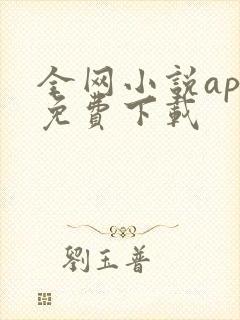 全网小説ap
免費下載
劉玉普